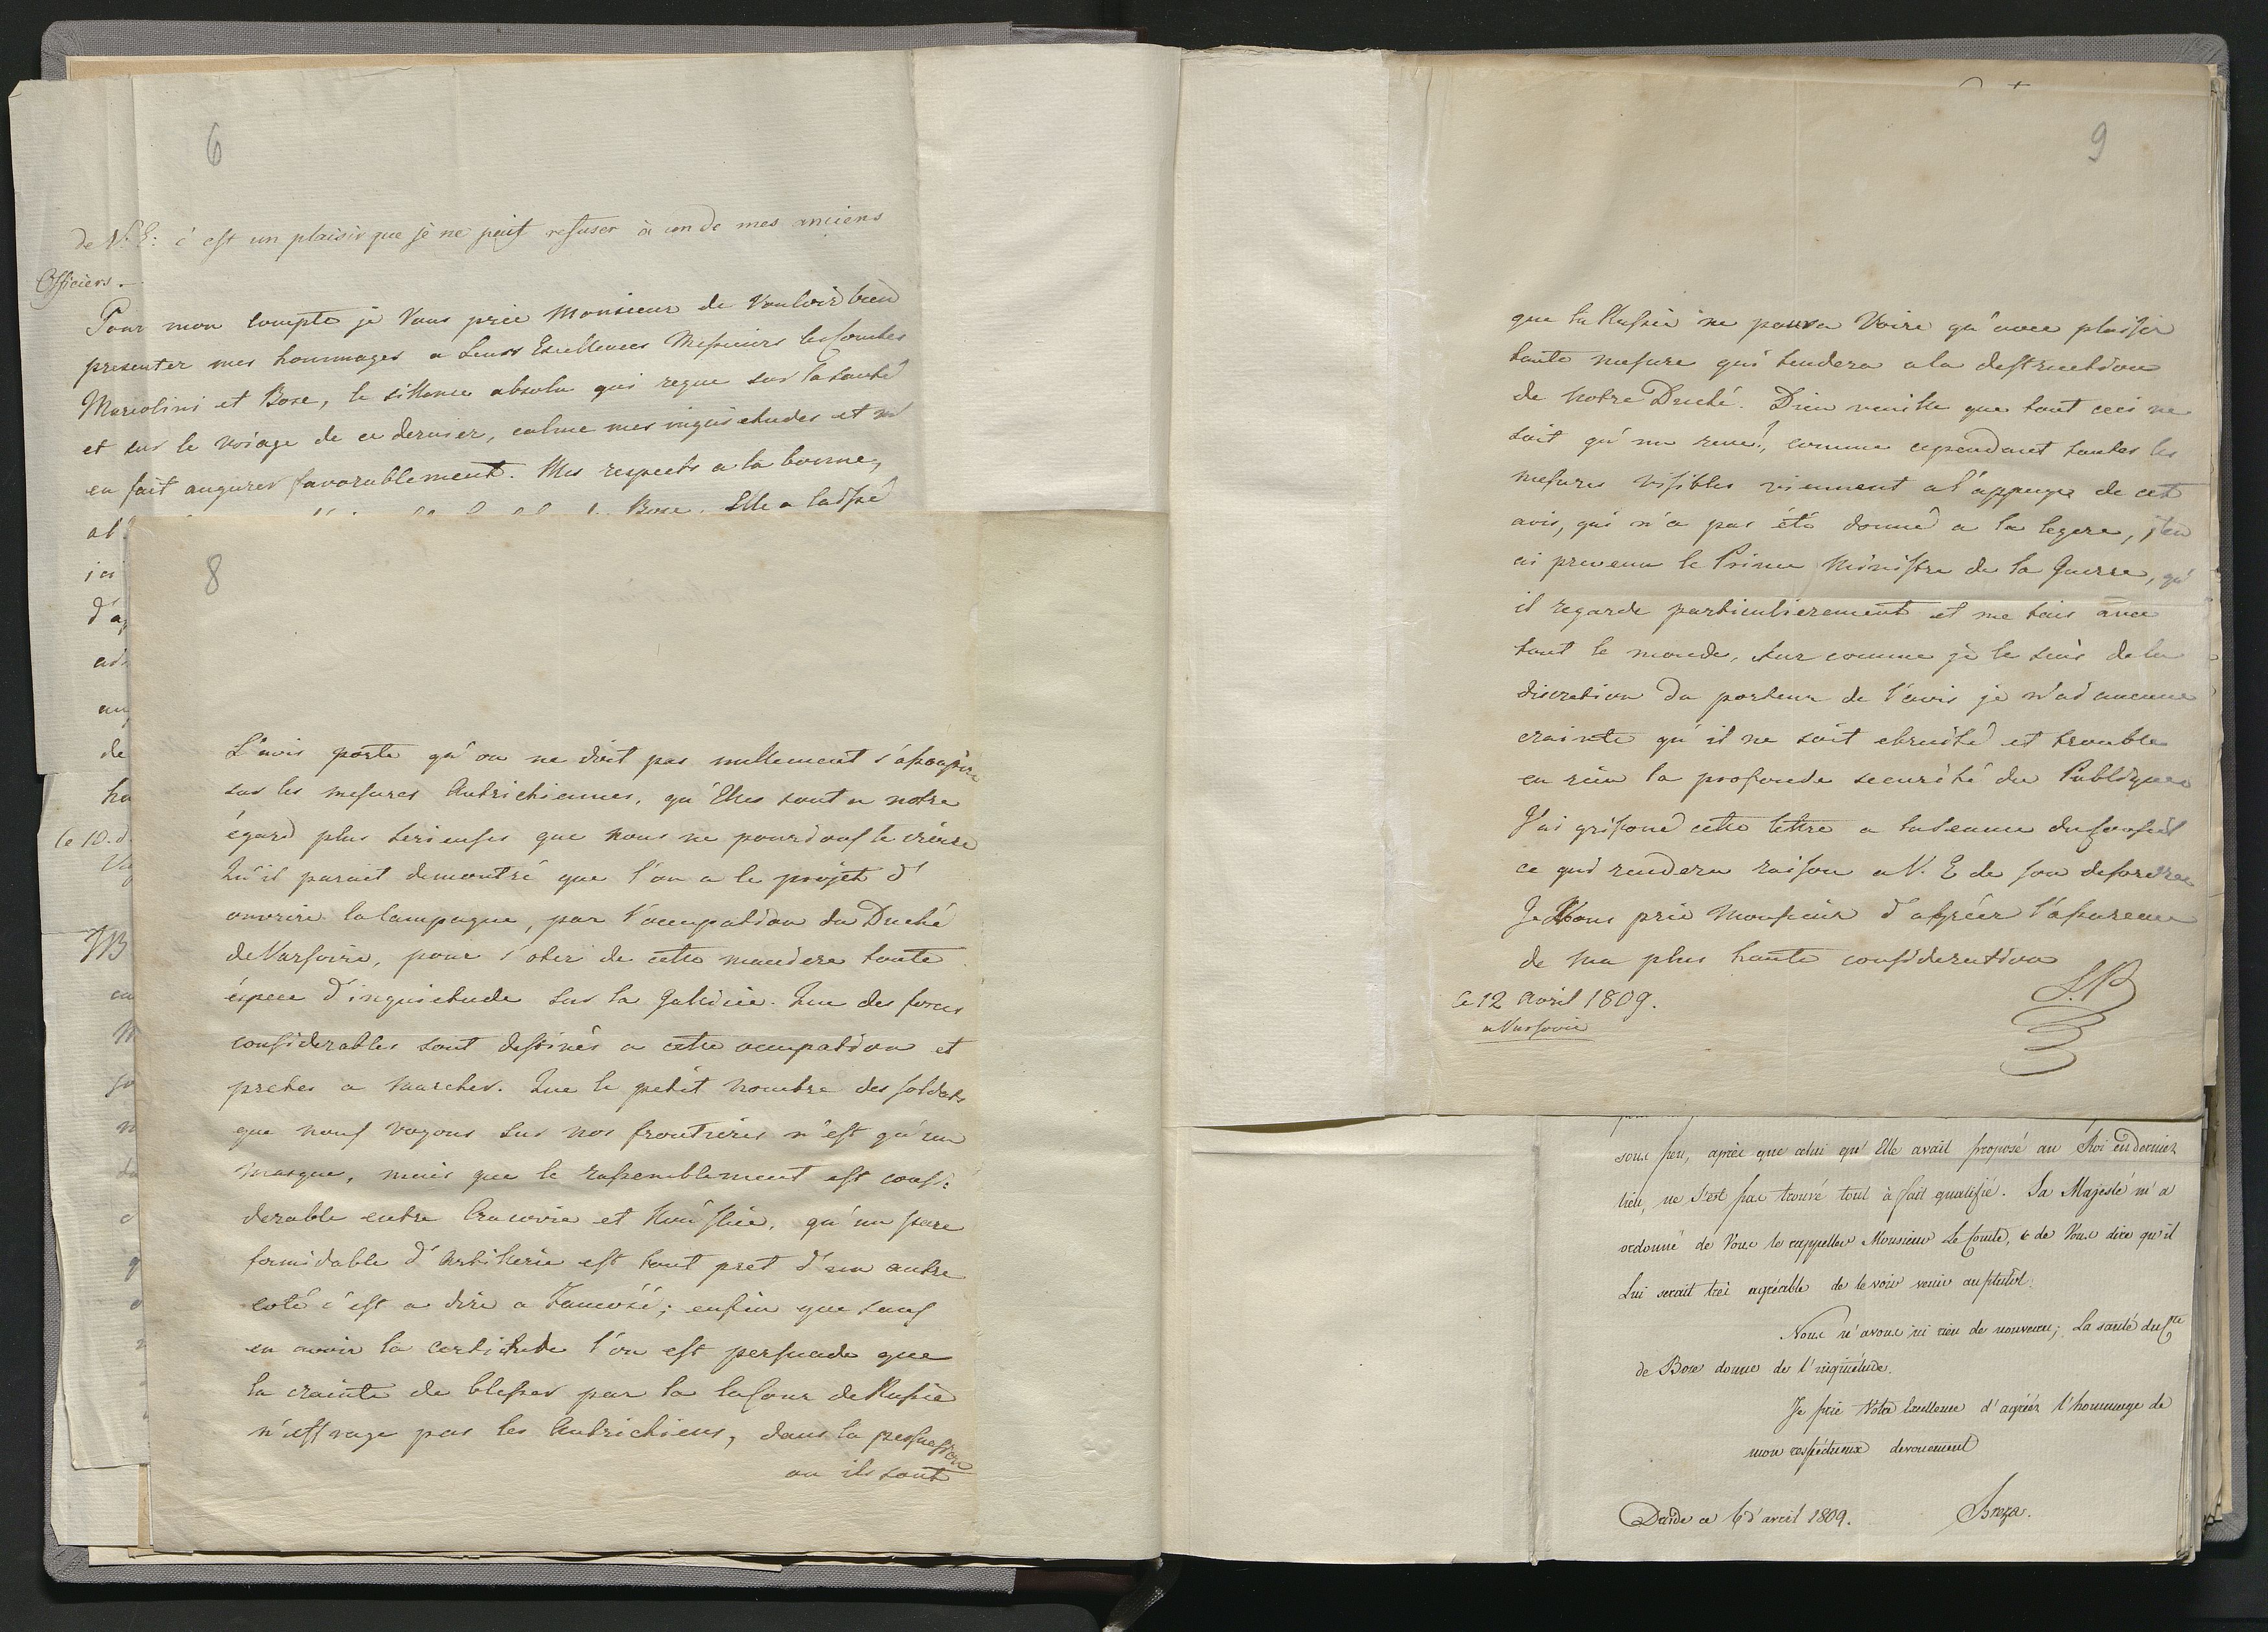 6
de V. E: c'est un plaisir que je ne peut refuser à un de mes anciens
Officiers.
Pour mon compte je Vous prie Monsieur de Vouloir bien
presenter mes hommages a Leurs Excellences Messieurs les Comtes
Marcolini et Bose, le sillence absolu qui regne sur la santé
et sur le voiage de ce dernier, calme mes inquietudes et m'
en fait augurer favorablement. Mes respects a la bonne,
Bose. Elle a laissé
8
L'avis porte qu'on ne doit pas nullement s'assoupire
sur les mesures Autrichiennes, qu'Elles sont a notre
égard plus serieuses que nous ne pourions le croire
Qu'il parait demontré que l'on a le projet d'
ouvrire la Campagne, par l'occupation du Duché
de Varsovie, pour s'oter de cette maniere toute
éspece d'inquietude sur la Galicie. Que des forces
considerables sont destinés a cette occupation et
pretes a marcher. Que le petit nombre des soldats
que nous voyons sur nos frontieres n'est qu'un
masque, mais que le rassemblement est consi:
derable entre Cracovie et
qu'un parc
formidable d'Artillerie est tout pret d'un autre
coté c'est a dire a Zamość; enfin que sans
en avoir la certitude l'on est persuade que
la crainte de blesser par la la Cour de Russie
n'effraye pas les Autrichiens, dans la persuasion
ou ils sont
le 10. d.
9
que la Russie ne poura Voire qu'avec plaisir
toute mesure qui tendera a la destruction
de notre Duché. Dieu veuille que tout ceci ne
soit qu'un reve!, comme cependant toutes les
mesures visibles viennent a l'appuye de cet
avis, qui n'a pas été donné a la legere, j'en
ai prevenu le Prince Ministre de la Guerre, qu'
il regarde particulierement et me tais avec
tout le monde, Sur comme je le suis de la
discretion du porteur de l'avis je n'ai aucune
crainte qu'il ne soit ebruité et trouble
en rien la profonde securité du Publique
J'ai grifoné cette lettre a la seance du Conseil
ce qui rendera raison a V. E de son desordre
Je Vous prie Monsieur d'agréer l'assurence
de ma plus haute consideration
le 12 Avril 1809.
a Varsovie
sous peu, après que celui qu'Elle avait proposé au Roi en dernier
lieu, ne s'est pas trouvé tout à fait qualifié. Sa Majesté m'a
ordonné de Vous le rappeller Monsieur Le Comte, & de Vous dire qu'il
Lui serait très agréable de le voir venir au plutôt.
Nous n'avons ici rien de nouveau; La santé du
de Bose donne de l'inquiétude.
Je prie Votre Excellence d'agréer l'hommage de
mon respectueux devouement
Dresde ce 6 d'avril 1809.
Breza.